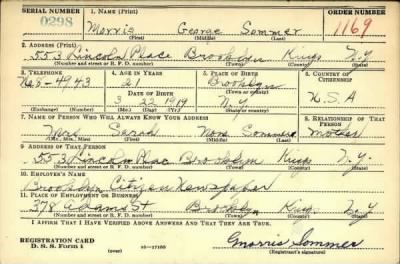 SERIAL NUMBER 1. NAME (Print) ORDER NUMBER
0298 Morris George Sommer 1169
(First) (Middle) (Last)
2. ADDRESS (Print)
553 Lincoln Place Brooklyn Kings N.Y.
(Number and street or R. F. D. number) (Town) (County) (State)
3. TELEPHONE 4. AGE IN YEARS 5. PLACE OF BIRTH 6. COUNTRY OF CITIZENSHIP
21 Brooklyn
DATE OF BIRTH (Town or county)
3 22 1919 N.Y. U.S.A
(Exchange) (Number) (Mo.) (Day) (Yr.) (State or country)
7. NAME OF PERSON WHO WILL ALWAYS KNOW YOUR ADDRESS 8. RELATIONSHIP OF THAT PERSON
Mrs Sarah None Sommer Mother
(Mr., Mrs., Miss) (First) (Middle) (Last)
9. ADDRESS OF THAT PERSON
553 Lincoln Place Brooklyn Kings N.Y.
(Number and street or R. F. D. number) (Town) (County) (State)
10. EMPLOYER'S NAME
Brooklyn Citizen Newspaper
11. PLACE OF EMPLOYMENT OR BUSINESS
378 Adams St Brooklyn Kings N.Y
(Number and street or R. F. D. number) (Town) (County) (State)
I AFFIRM THAT I HAVE VERIFIED ABOVE ANSWERS AND THAT THEY ARE TRUE.
REGISTRATION CARD
D. S. S. Form 1 (over) 16—17105 Morris Sommer
(Registrant's signature)